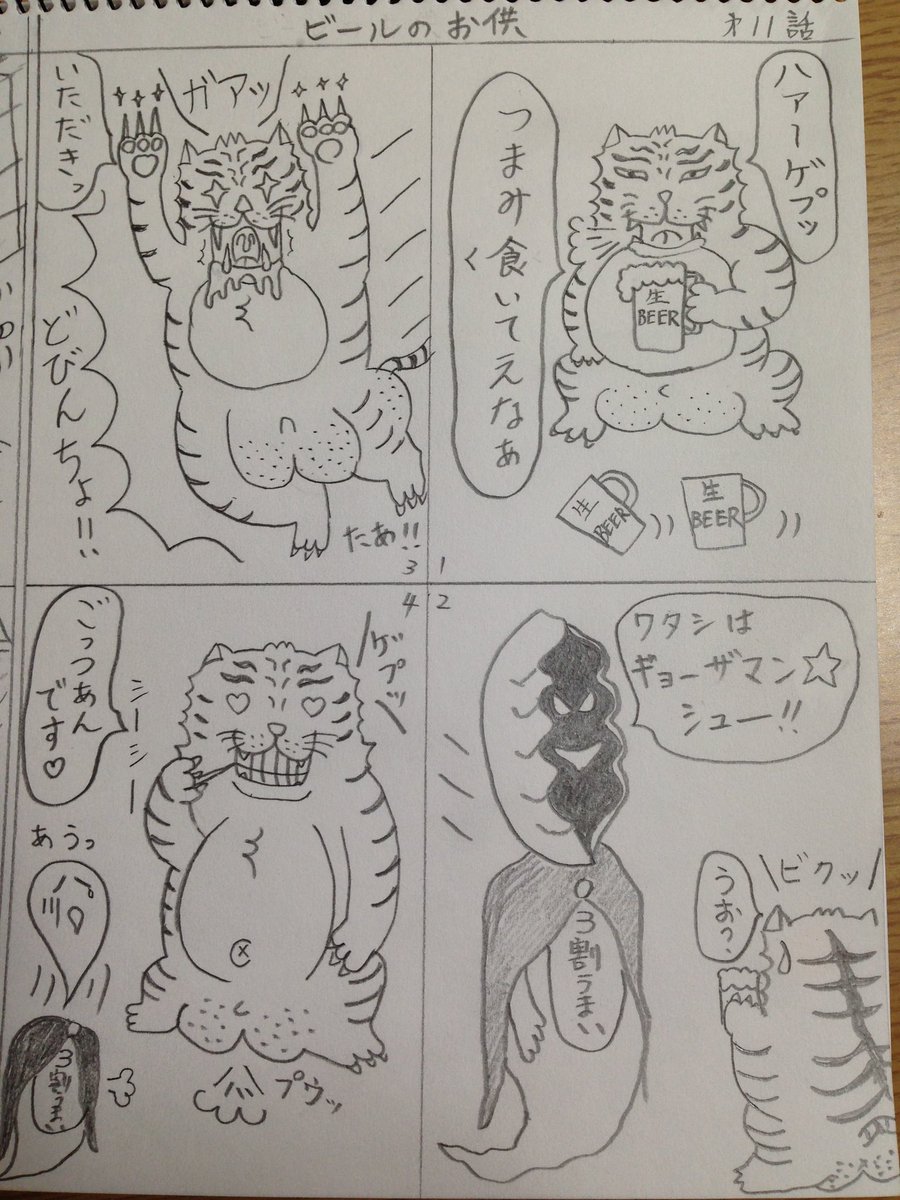 ビールのお供
オ11話
ハァーゲプッ
つまみ食いてえなぁ
生
BEER
生
BEER
生
BEER
1
2
ワタシは
ギョーザマン☆
シュー!!
3割うまい
ビクッ
うお?
ガアッ
いただきっ
どびんちょ!!
たあ!!
3
4
ゲプッ
ごっつあん
です♡
シーシー
あうっ
プウッ
3割うまい